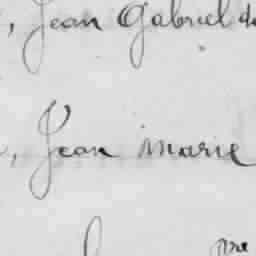 , Jean Gabriel de
, Jean Marie
me